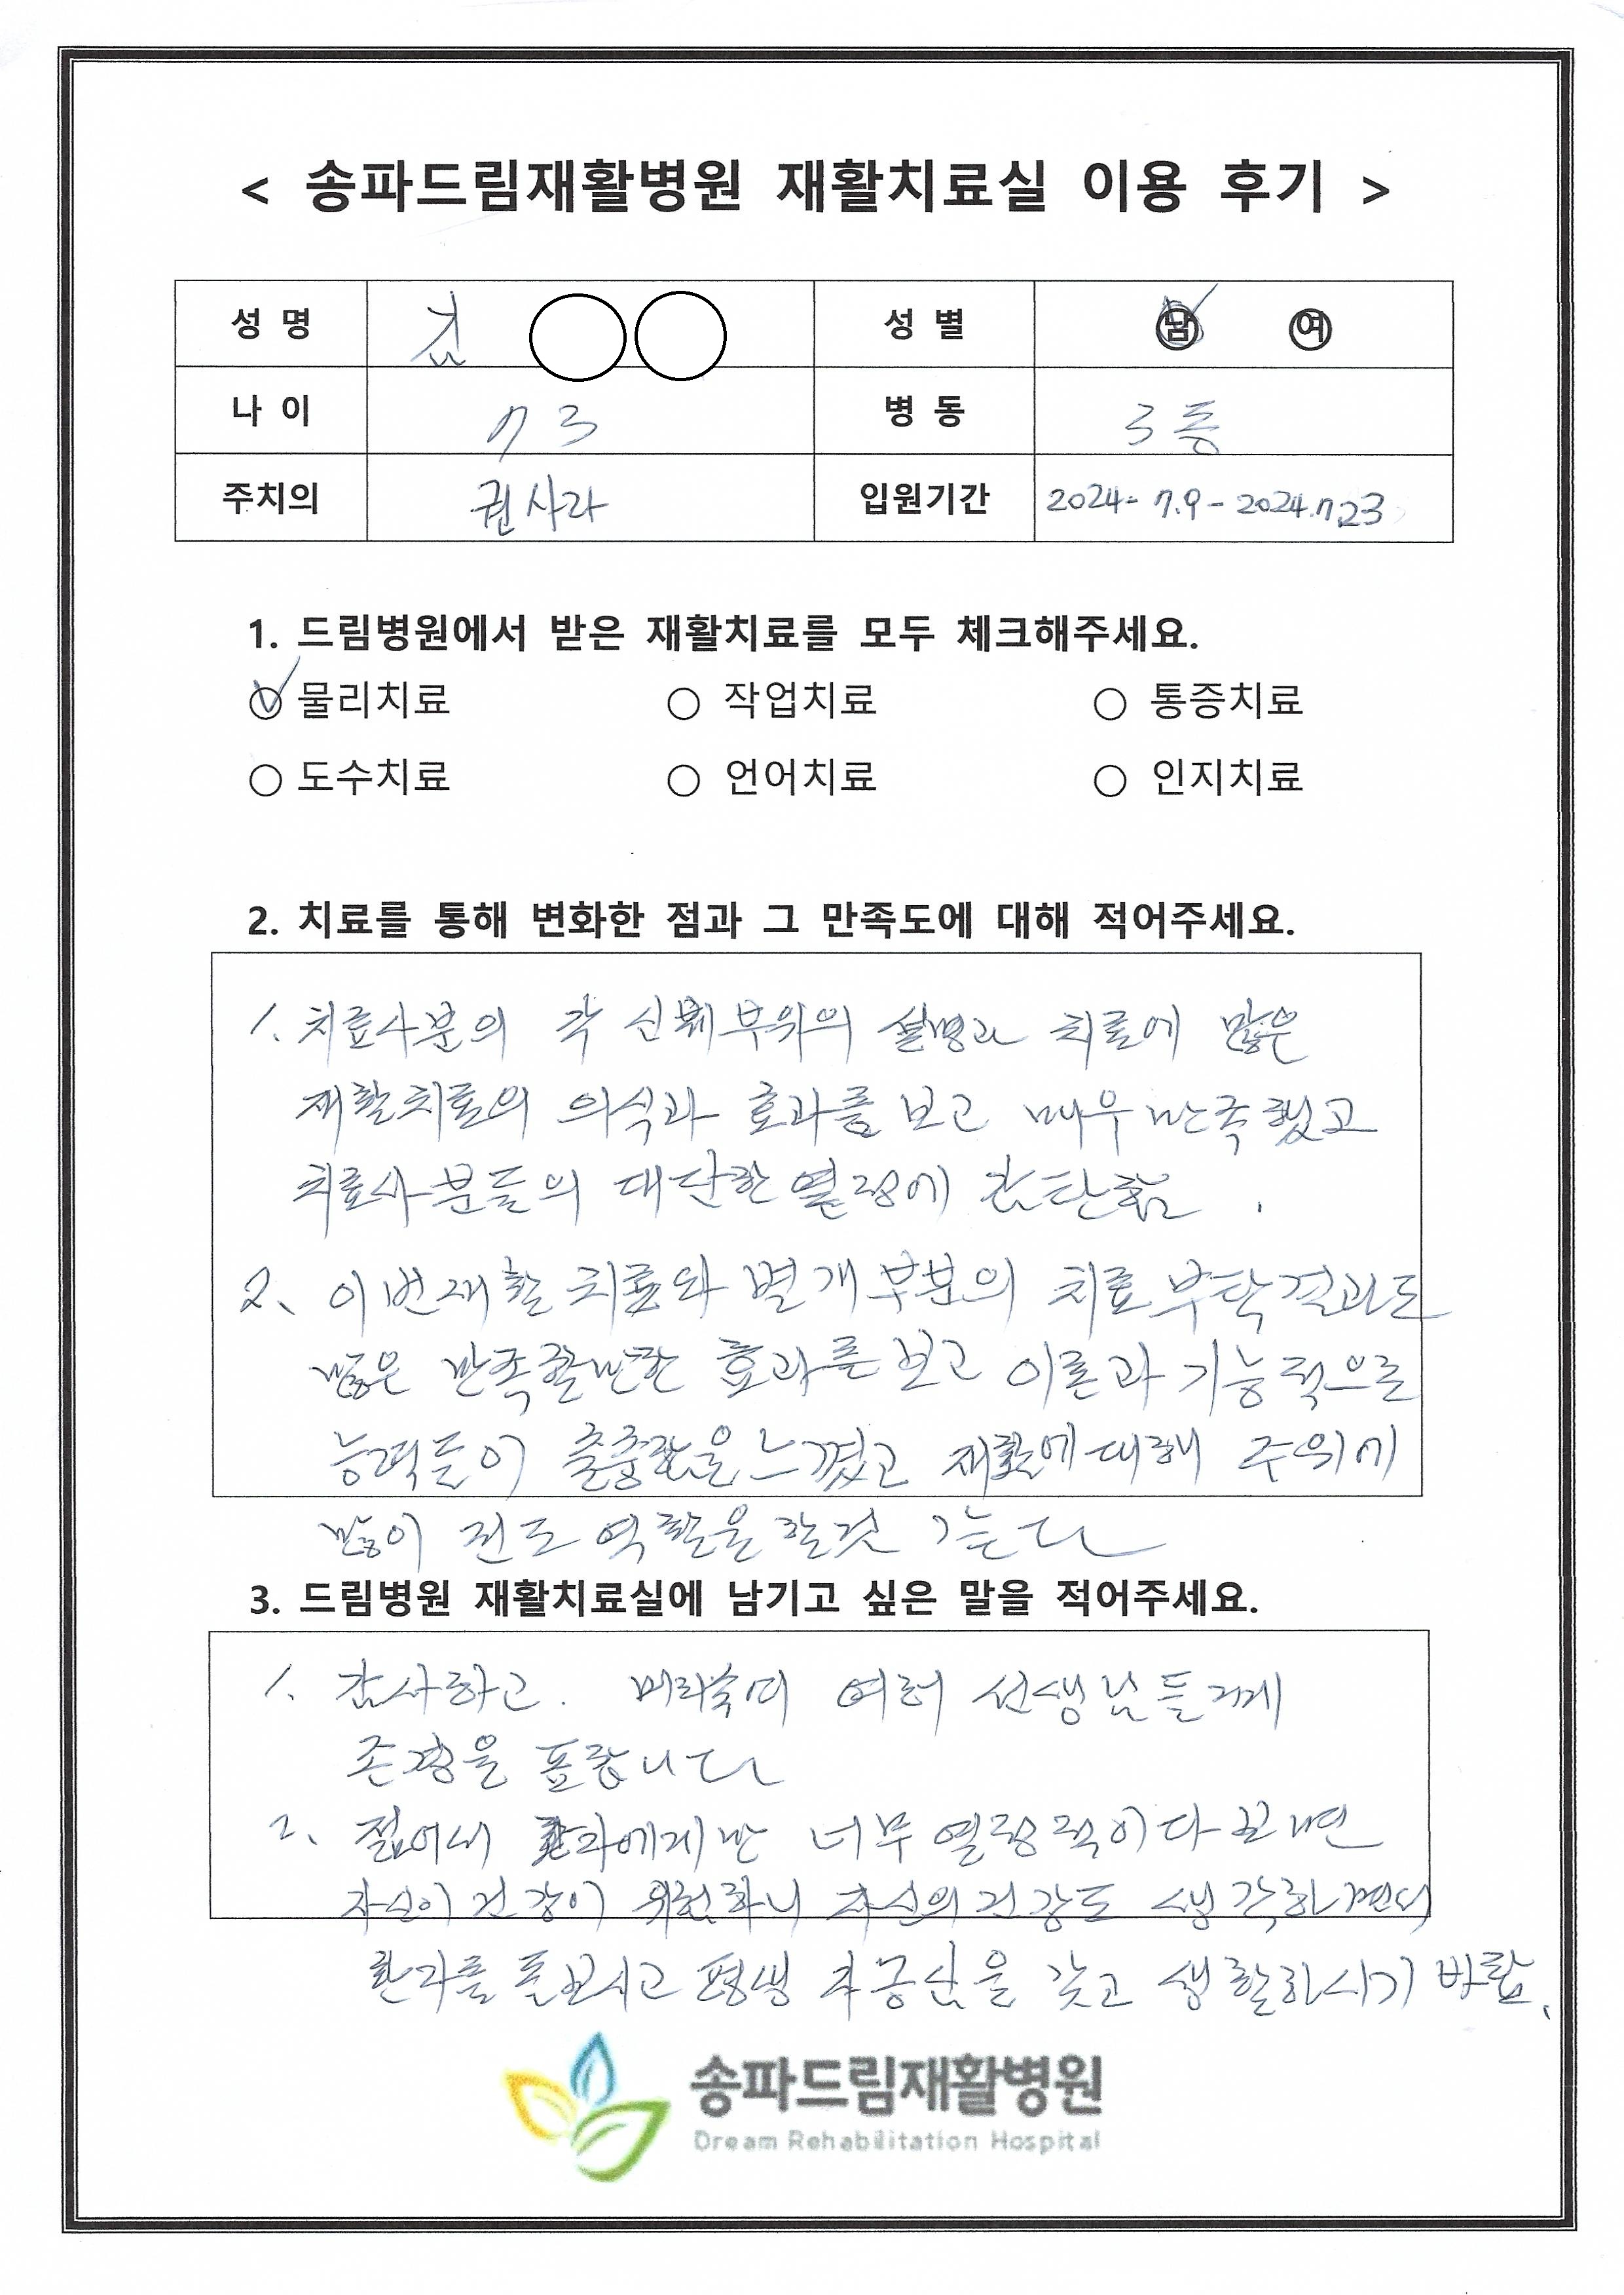 < 송파드림재활병원 재활치료실 이용 후기 >
성 명 김 성 별 남 여
나 이 73 병 동 3층
주치의 권사라 입원기간 2024- 7.9 - 2024.7.23
1. 드림병원에서 받은 재활치료를 모두 체크해주세요.
물리치료 작업치료 통증치료
도수치료 언어치료 인지치료
2. 치료를 통해 변화한 점과 그 만족도에 대해 적어주세요.
1. 치료사분의 각 신체부위의 설명과 치료에 많은
재활치료의 의식과 효과를 보고 매우 만족했고
치료사분들의 대단한 열정에 감탄함.
2. 이번재활치료와 별개부분의 치료 부탁결과도
많은 만족할만한 효과를 보고 이론과 기능적으로
능력들이 출중함을 느꼈고 재활에대해 주위에
많이 전도 역할을 할것
3. 드림병원 재활치료실에 남기고 싶은 말을 적어주세요.
1. 감사하고. 여러 선생님들께
존경을 표합니다
2. 젊어서 환자에게만 너무 열정적이다보면
자신이 건강이 위험하니 자신의 건강도 생각하면서
환자를 돌보시고 평생 자긍심을 갖고 생활하시기 바람.
송파드림재활병원
Dream Rehabilitation Hospital